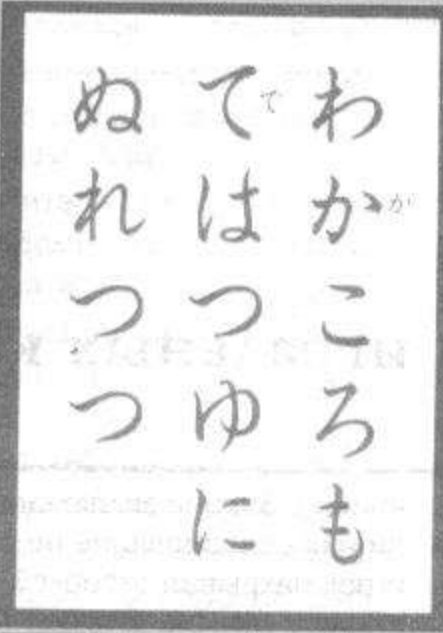 わかころも
てはつゆに
ぬれつつ
が
で